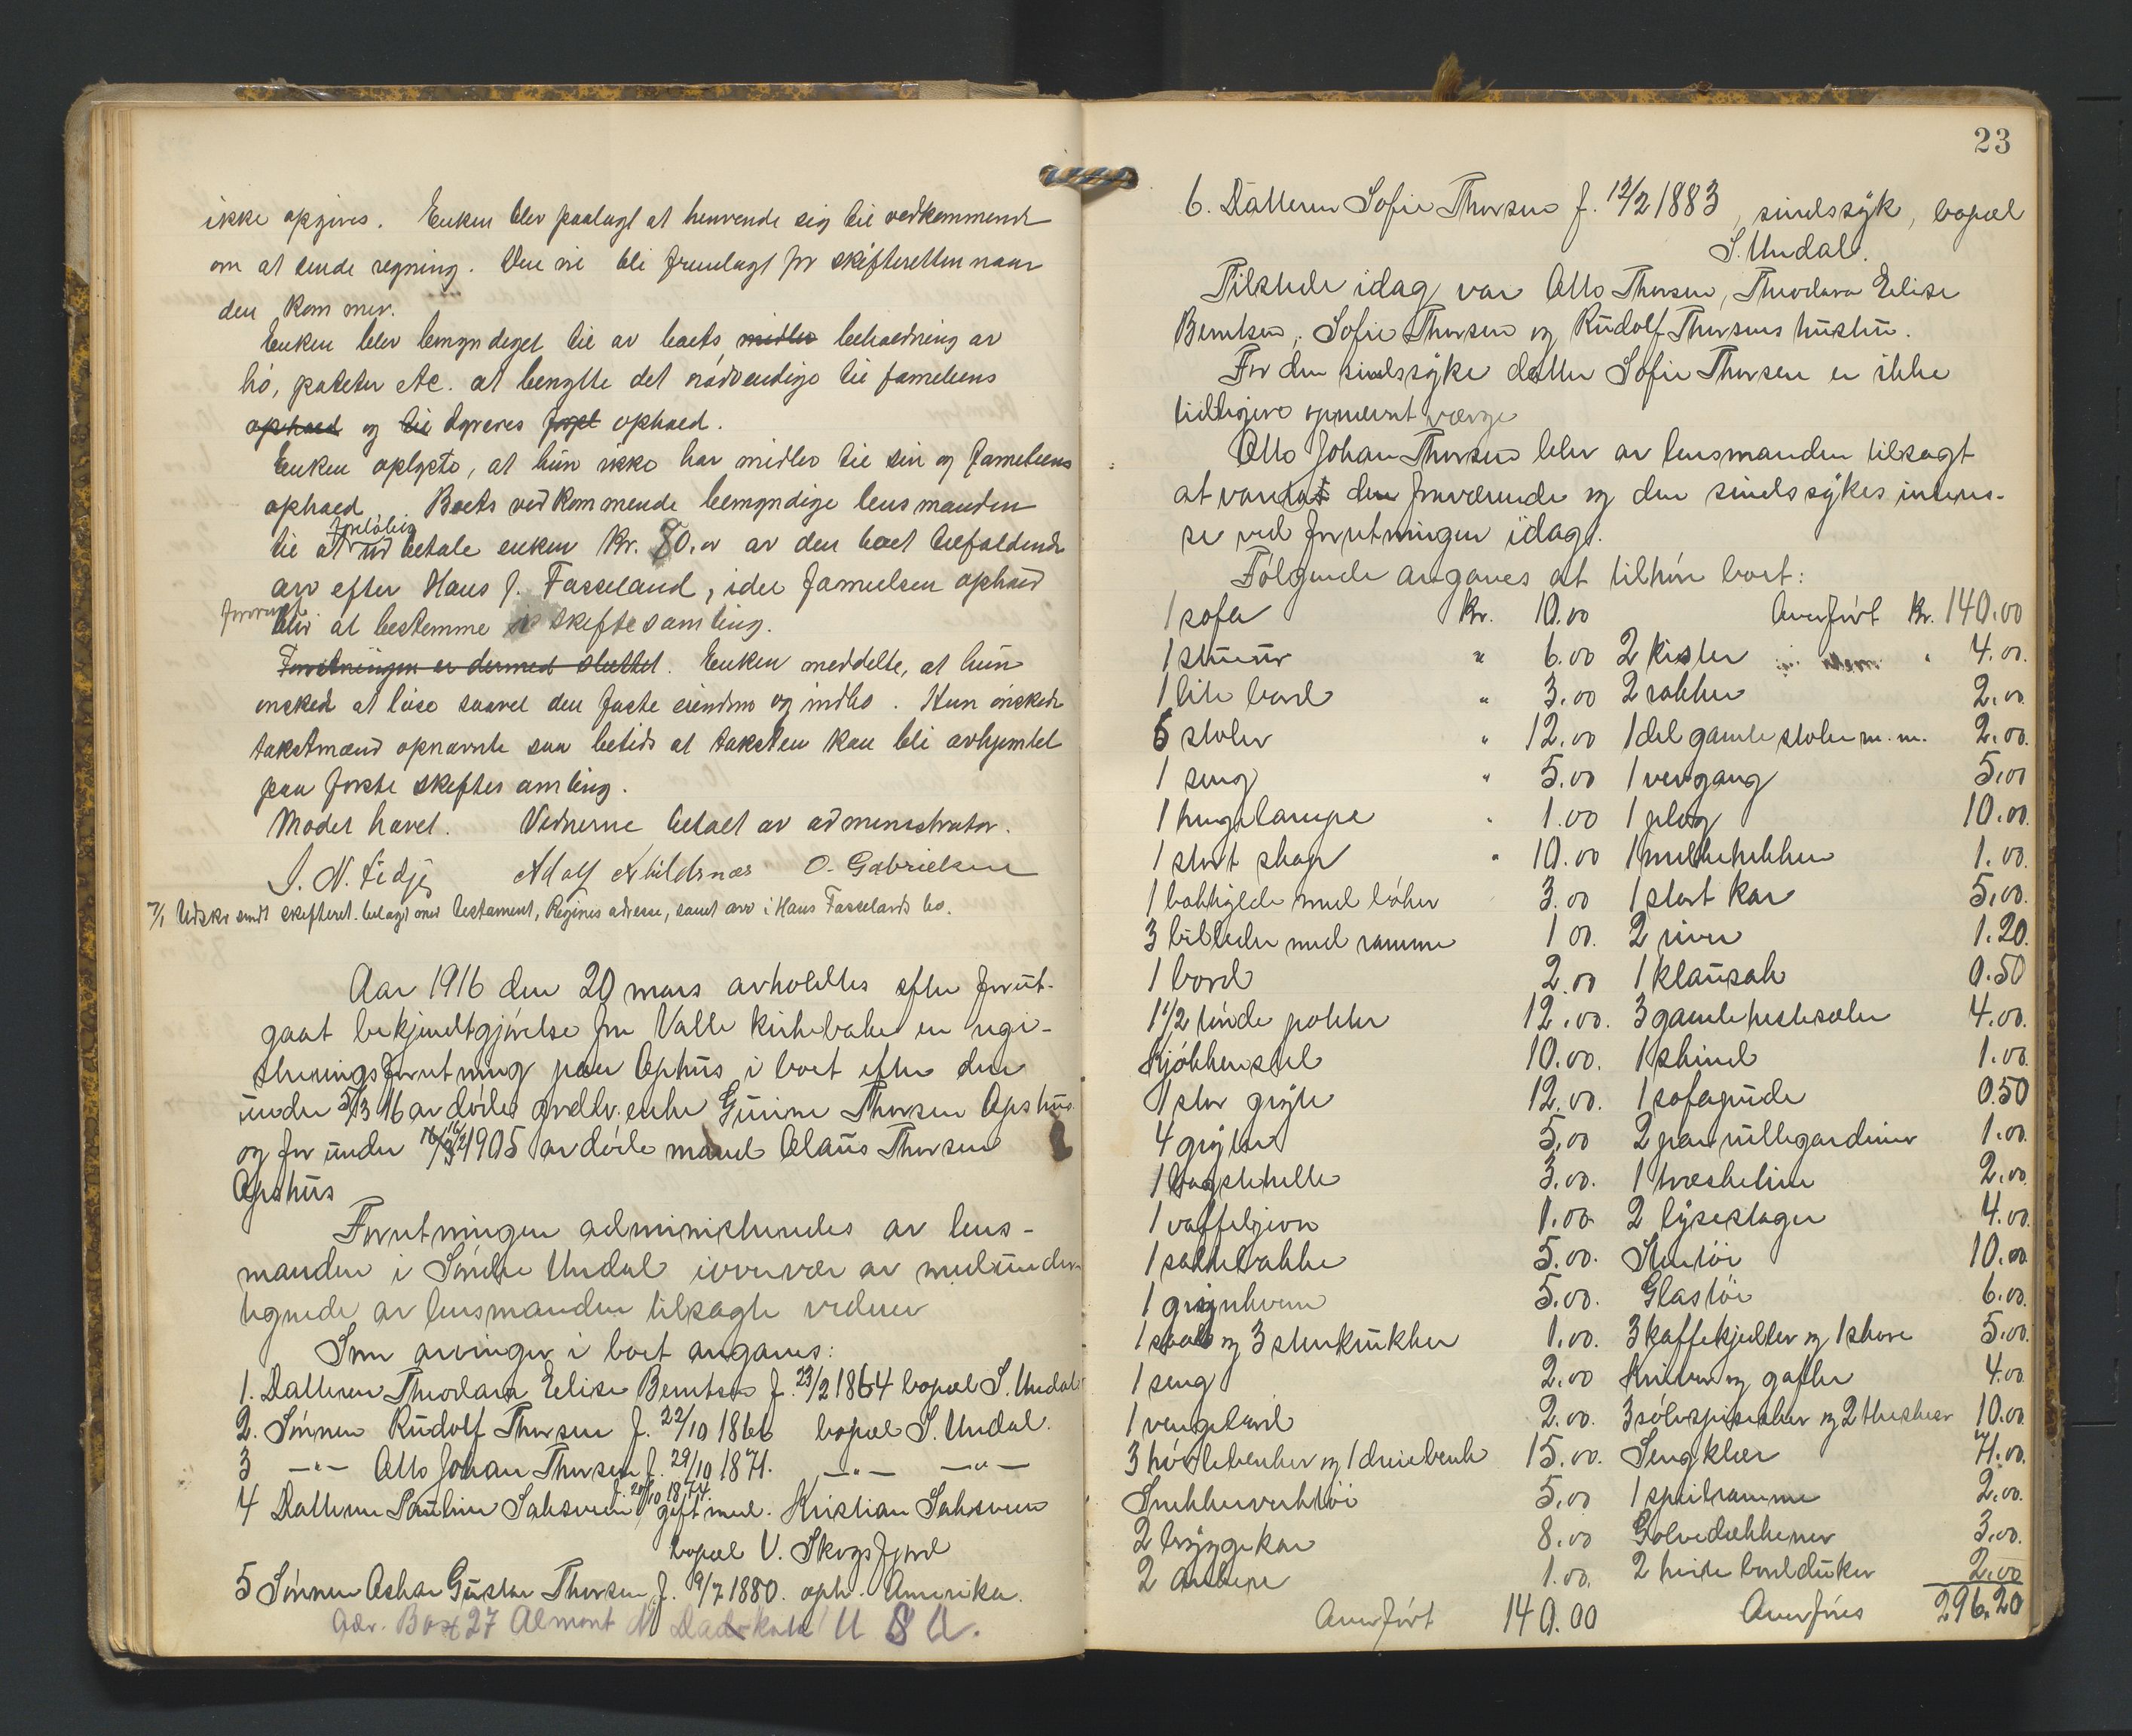 ikke opgives. Enken blev paalagt at henvende sig til vedkommende
om at sende regning. Den vil bli fremlagt for skifteretten naar
den kommer.
Enken blev bemyndiget til av boets midler beholdning av
hö, poteter etc. at benytte det nödvendige til familiens
ophold og til dyrenes ophold.
Enken oplyste, at hun ikke har midler til sin og familiens
ophold. Boets vedkommende bemyndige lensmanden
til at forelöbig betale enken Kr. 80.00 av den boet tilfaldende
arv efter Hans J. Fasseland, idet familiens ophold
forövrigt blir at bestemme i skiftesamling.
Forretningen er dermed sluttet. Enken meddelte, at hun
önsked at löse saavel den faste eiendom og indbo. Hun önskede
takstmænd opnævnte saa betids at taksten kan bli avhjemlet
paa förste skiftesamling.
Mödet hævet. Vidnerne betalt av administrator.
S. N. Fidje Adolf Abildsnæs O. Gabrielsen
7/1 Utskr. sendt skifteret. bilagt med testament, Regines adresse, samt arv i Hans Fasselands bo.
Aar 1916 den 20 mars avholdtes efter forut-
gaat bekjendtgjörelse fra Valle kirkebakke en regi-
streringsforretning paa Ophus i boet efter den
under 5/3 16 avdöde gredkv. enke Gurine Thorsen Opshus
og for under 16/ 1905 avdöde mand Claus Thorsen
Opshus
Forretningen administreredes av lens-
manden i Söndre Undal i overvær av medunder-
tegnede av lensmanden tilsagte vidner
Som arvinger i boet angaves:
1. Datteren Theodara Elise Berntsen f. 23/2 1864 bopæl S. Undal
2. Sönnen Rudolf Thorsen f. 22/10 1866 bopæl S. Undal.
3 —"— Otto Johan Thorsen f. 29/10 1871. —"— —"—
4 Datteren Pauline Salvesen f. 20/10 1874 gift med. Kristian Salvesen
bopæl V. Skogsfjord
5 Sönnen Oskar Gustav Thorsen f. 9/7 1880. oph. Amerika.
Adr. Box 27 Almont N Dackota U S A.
23
6. Datteren Sofie Thorsen f. 12/2 1883, sindssyk, bopæl
S. Undal.
Tilstede idag var Otto Thorsen, Theodara Elise
Berntsen, Sofie Thorsen og Rudolf Thorsens hustru.
For den sindssyke datter Sofie Thorsen er ikke
tidligere opnævnt værge
Otto Johan Thorsen blev av lensmanden tilsagt
at vareta den fraværende og den sindssykes interes-
se ved forretningen idag.
Fölgende angaves at tilhöre boet:
1 sofa Kr. 10.00 Overfört Kr. 140.00
1 stueur " 6.00 2 kister " 4.00.
1 lite bord " 3.00 2 rokker 2.00
5 stoler " 12.00 1 del gamle stoler m.m. 2.00.
1 seng " 5.00 1 vevgang 5.00
1 hengelampe " 1.00 1 plog 10.00.
1 stort skap " 10.00 1 melkekikker 1.00.
1 bokhylde med böker 3.00 1 stort kar 5.00.
3 billeder med ramme 1 00. 2 river 1.20.
1 bord 2.00 1 klausak 0.50
1 1/2 tönde poteter 12.00. 3 gamle hesteseler 4.00.
Kjökkenstel 10.00. 1 skind 1.00.
1 stor gryte 12.00. 1 sofapude 0.50
4 gryter 5.00 2 par rullegardiner 1.00.
1 bagstehelle 3.00. 1 træskeline 2.00.
1 vaffeljern 1.00 2 lysestager 4.00.
1 saltebakke 5.00. Stentöi 10.00
1 grynkvern 5.00. Glastöi 6.00.
1 skaal og 3 stenkrukker 1.00. 3 kaffekjedler og 1 skove 5.00.
1 seng 2.00 Kniver og gafler 4.00
1 vengebord 2.00. 3 sölvspiseskeer og 2 theskeer 10.00.
3 hövlebenker og 1 dreiebenk 15.00. Sengklær 71.00.
Snekkerverktöi 5.00 1 speilramme 2.00.
2 bryggekar 8.00 Golvedækkener 3.00.
2 ambere 1.00. 2 hvite bordduker 2.00
Overfört 140.00 Overföres 296.20